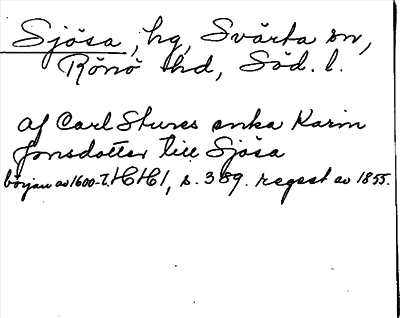 Sjösa, hg, Svärta sn,
Rönö hd, Söd. l.
af Carl Stures enka Karin
Jonsdotter till Sjösa
början av 1600-t. HH 1, s. 389. regest av 1855.